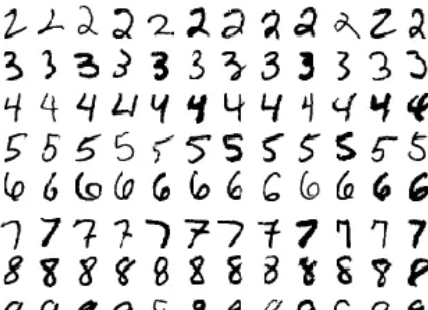 2 2 2 2 2 2 2 2 2 2 2 2
3 3 3 3 3 3 3 3 3 3 3 3
4 4 4 4 4 4 4 4 4 4 4 4
5 5 5 5 5 5 5 5 5 5 5 5
6 6 6 6 6 6 6 6 6 6 6 6
7 7 7 7 7 7 7 7 7 7 7 7
8 8 8 8 8 8 8 8 8 8 8 8